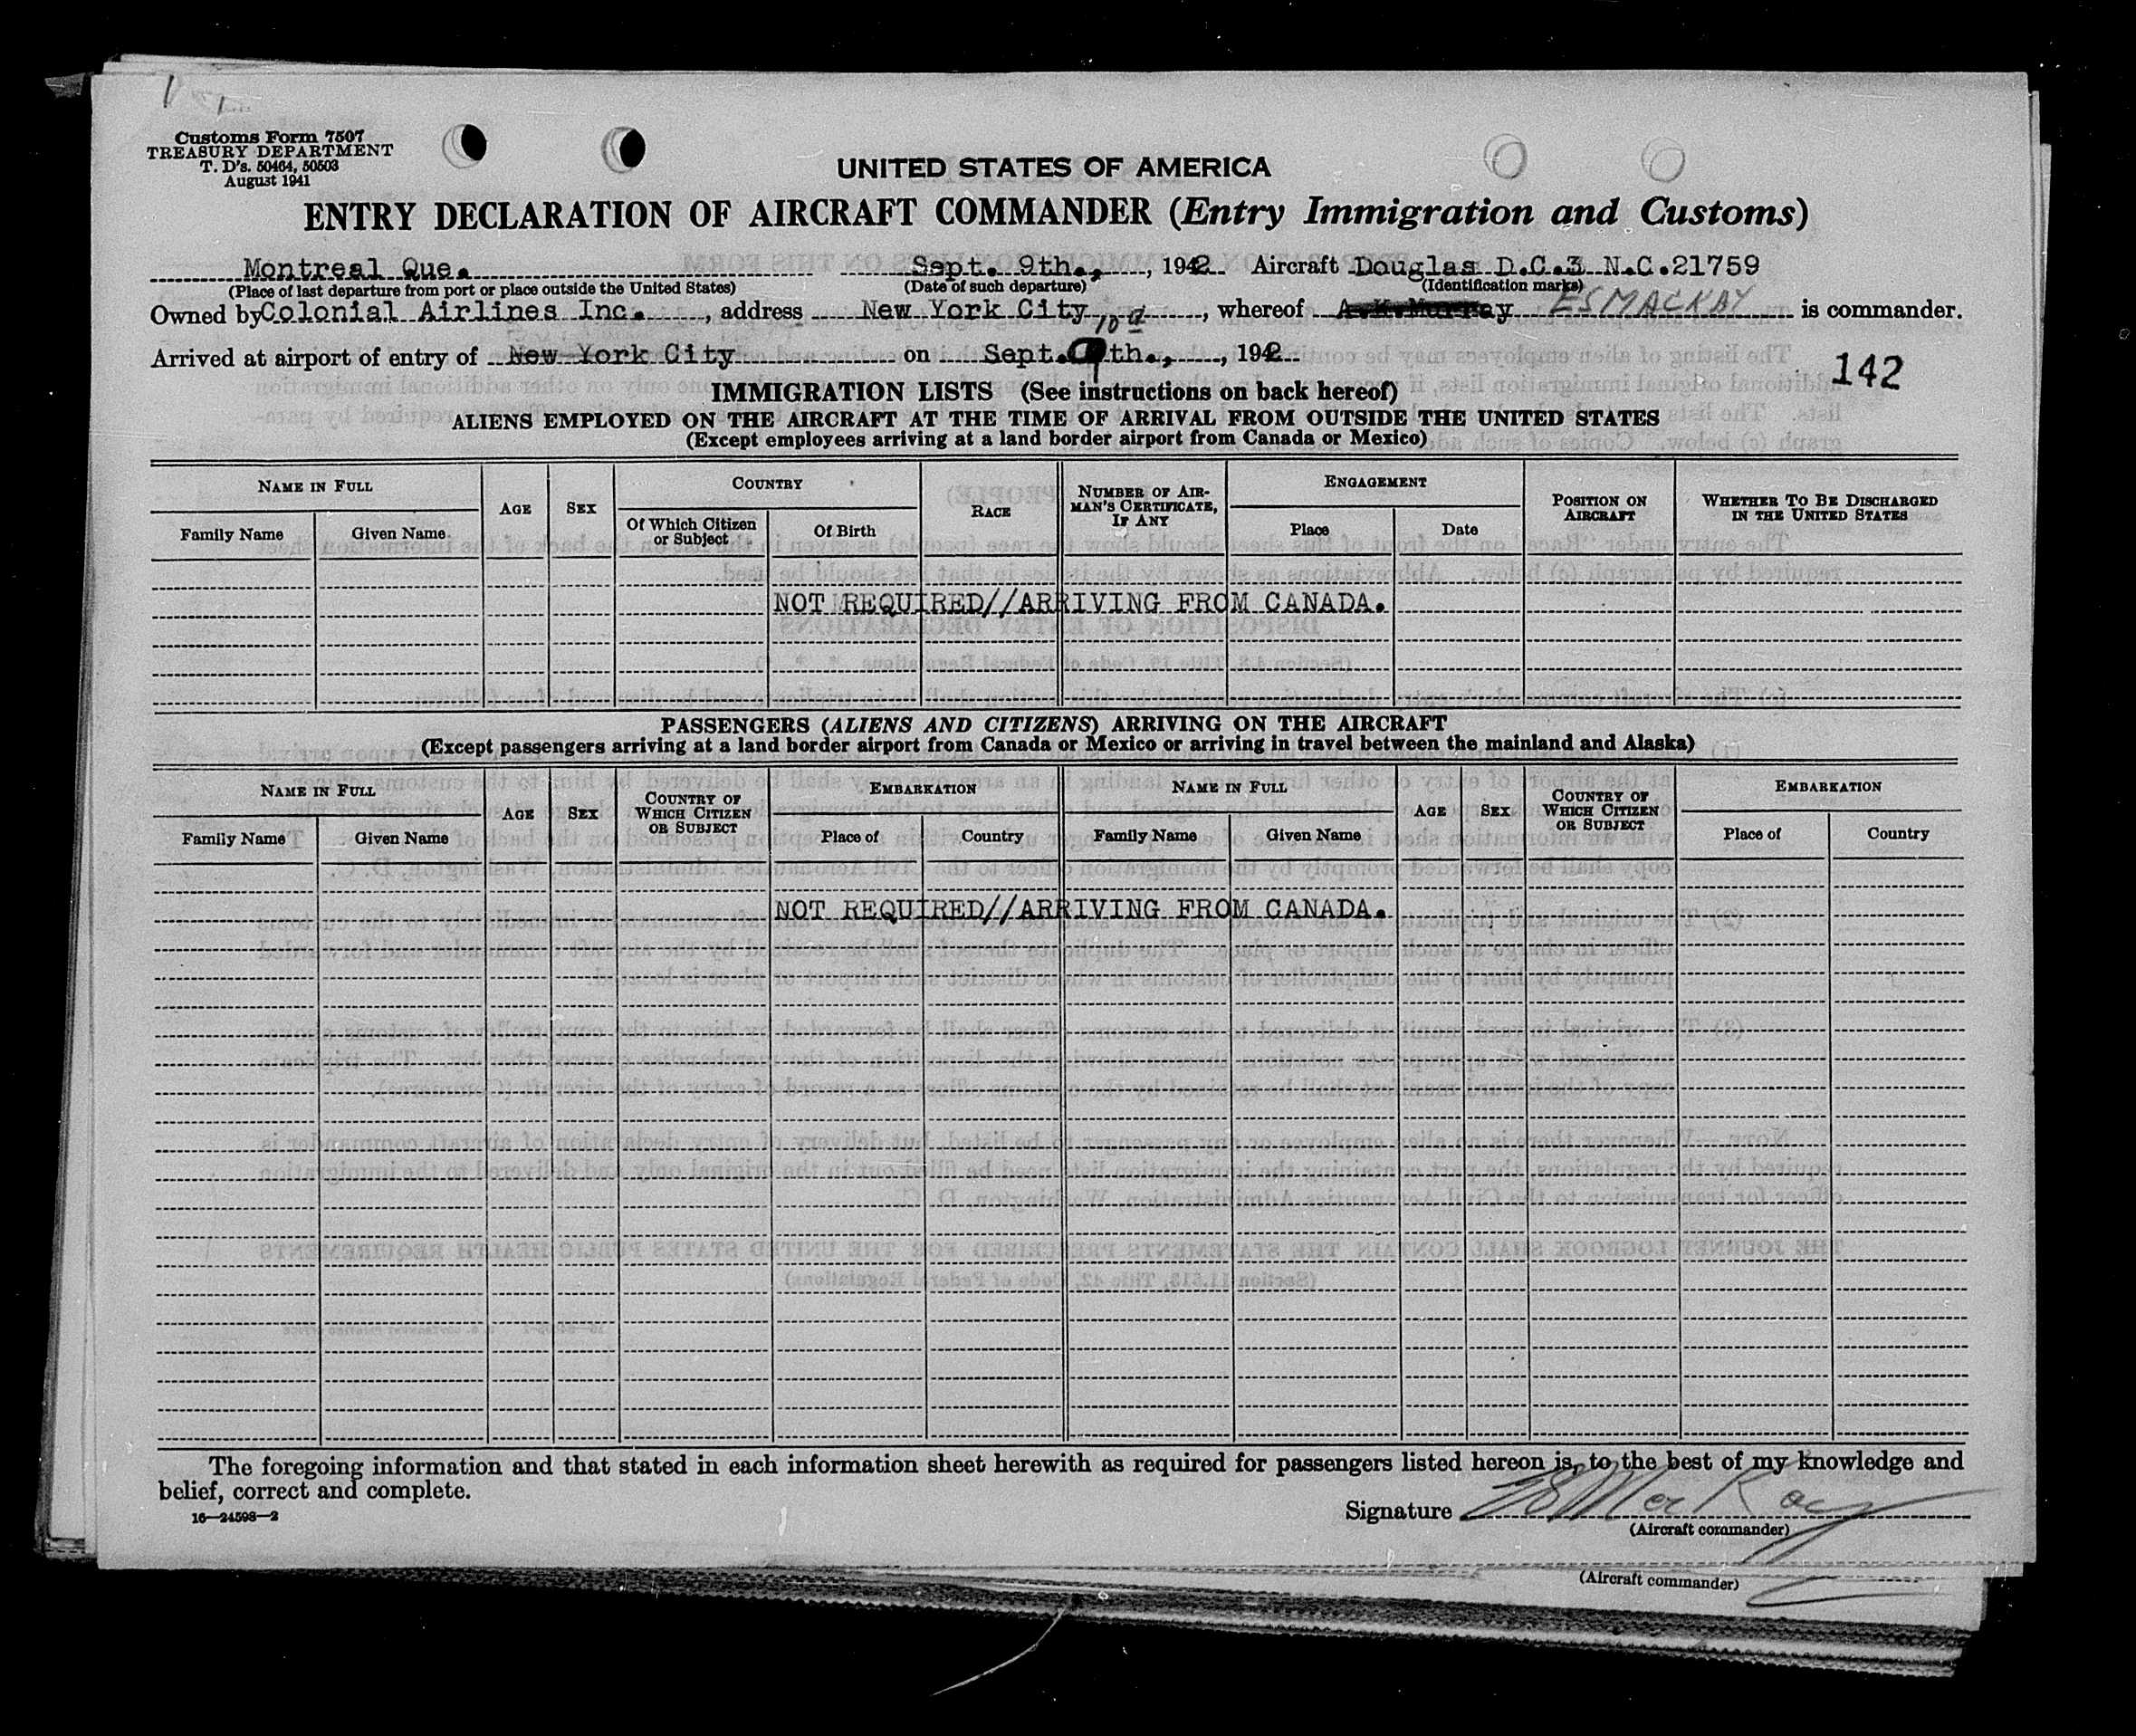 Customs Form 7507
TREASURY DEPARTMENT
T. D's. 50464, 50503
August 1941
UNITED STATES OF AMERICA
ENTRY DECLARATION OF AIRCRAFT COMMANDER (Entry Immigration and Customs)
Montreal Que. Sept. 9th., , 1942 Aircraft Douglas D.C.3 N.C.21759
(Place of last departure from port or place outside the United States) (Date of such departure) (Identification marks)
Owned by Colonial Airlines Inc. , address New York City , whereof A.K.Murray ES MACKAY is commander.
10
Arrived at airport of entry of New York City on Sept. 9th., , 1942
142
IMMIGRATION LISTS (See instructions on back hereof)
ALIENS EMPLOYED ON THE AIRCRAFT AT THE TIME OF ARRIVAL FROM OUTSIDE THE UNITED STATES
(Except employees arriving at a land border airport from Canada or Mexico)
NAME IN FULL AGE SEX COUNTRY RACE NUMBER OF AIRMAN'S CERTIFICATE, IF ANY ENGAGEMENT POSITION ON AIRCRAFT WHETHER TO BE DISCHARGED IN THE UNITED STATES
Family Name Given Name Of Which Citizen or Subject Of Birth Place Date
NOT REQUIRED//ARRIVING FROM CANADA.
PASSENGERS (ALIENS AND CITIZENS) ARRIVING ON THE AIRCRAFT
(Except passengers arriving at a land border airport from Canada or Mexico or arriving in travel between the mainland and Alaska)
NAME IN FULL AGE SEX COUNTRY OF WHICH CITIZEN OR SUBJECT EMBARKATION NAME IN FULL AGE SEX COUNTRY OF WHICH CITIZEN OR SUBJECT EMBARKATION
Family Name Given Name Place of Country Family Name Given Name Place of Country
NOT REQUIRED//ARRIVING FROM CANADA.
The foregoing information and that stated in each information sheet herewith as required for passengers listed hereon is, to the best of my knowledge and
belief, correct and complete.
16—24598—2
Signature ES MacKay
(Aircraft commander)
(Aircraft commander)